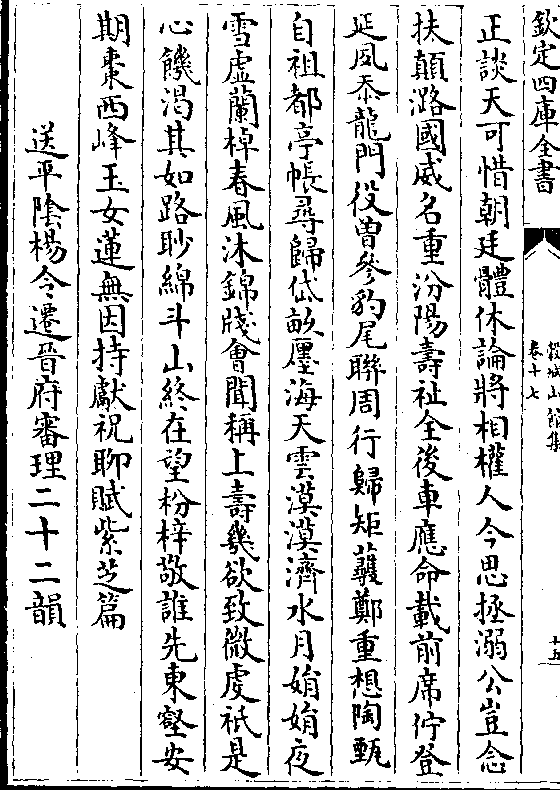 欽定四庫全書
穀城山館集
卷十七
十五
正談天可惜朝廷體休論將相權人今思拯溺公豈念
扶顛潞國威名重汾陽壽祉全後車應命載前席佇登
延夙忝龍門役曽參豹尾聯周行歸矩蒦鄭重想陶甄
自祖都亭帳尋歸岱畝廛海天雲漠漠濟水月娟娟夜
雪虛蘭棹春風沐錦牋會聞稱上壽幾欲致微䖍祇是
心饑渴其如路眇綿斗山終在望枌梓敬誰先東壑安
期棗西峰玉女蓮無因持獻祝聊賦紫芝篇
送平陰楊令遷晉府審理二十二韻